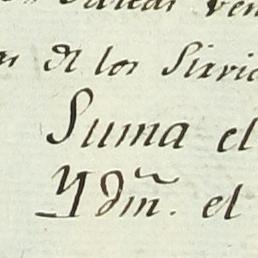 ven
de los Sirvi
Suma el
Ydm̃. el